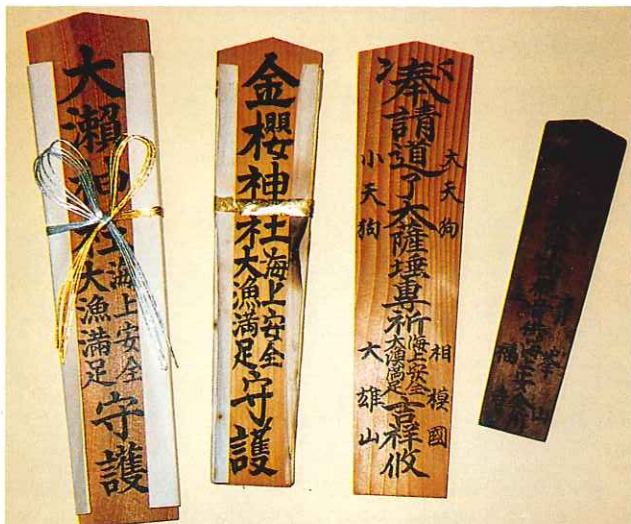 大瀬神社
海上安全
大漁満足
守護
金櫻神社
海上安全
大漁満足
守護
奉請道了大薩埵専祈
海上安全
大漁満足
吉祥攸
大天狗
小天狗
相模國
大雄山